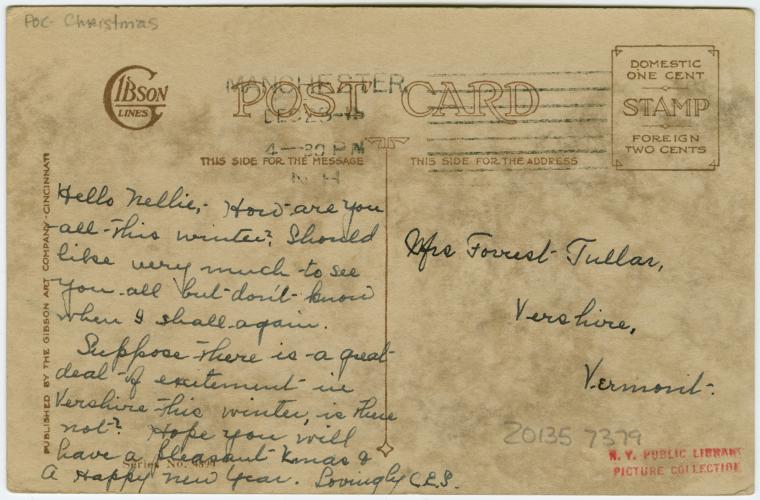 POC- Christmas
GIBSON
LINES
MANCHESTER
4-30 PM
N H
POST CARD
DOMESTIC
ONE CENT
STAMP
FOREIGN
TWO CENTS
THIS SIDE FOR THE MESSAGE
THIS SIDE FOR THE ADDRESS
PUBLISHED BY THE GIBSON ART COMPANY-CINCINNATI
Hello Nellie,- How are you
all this winter? Should
like very much to see
you all but don't know
when I shall again.
Suppose there is a great
deal of excitement in
Vershire this winter, is there
not? Hope you will
have a pleasant Xmas &
a Happy new Year. Lovingly C.E.S.
Series No.
Mrs Forrest Tullar,
Vershire,
Vermont.
20135 7379
N. Y. PUBLIC LIBRARY
PICTURE COLLECTION